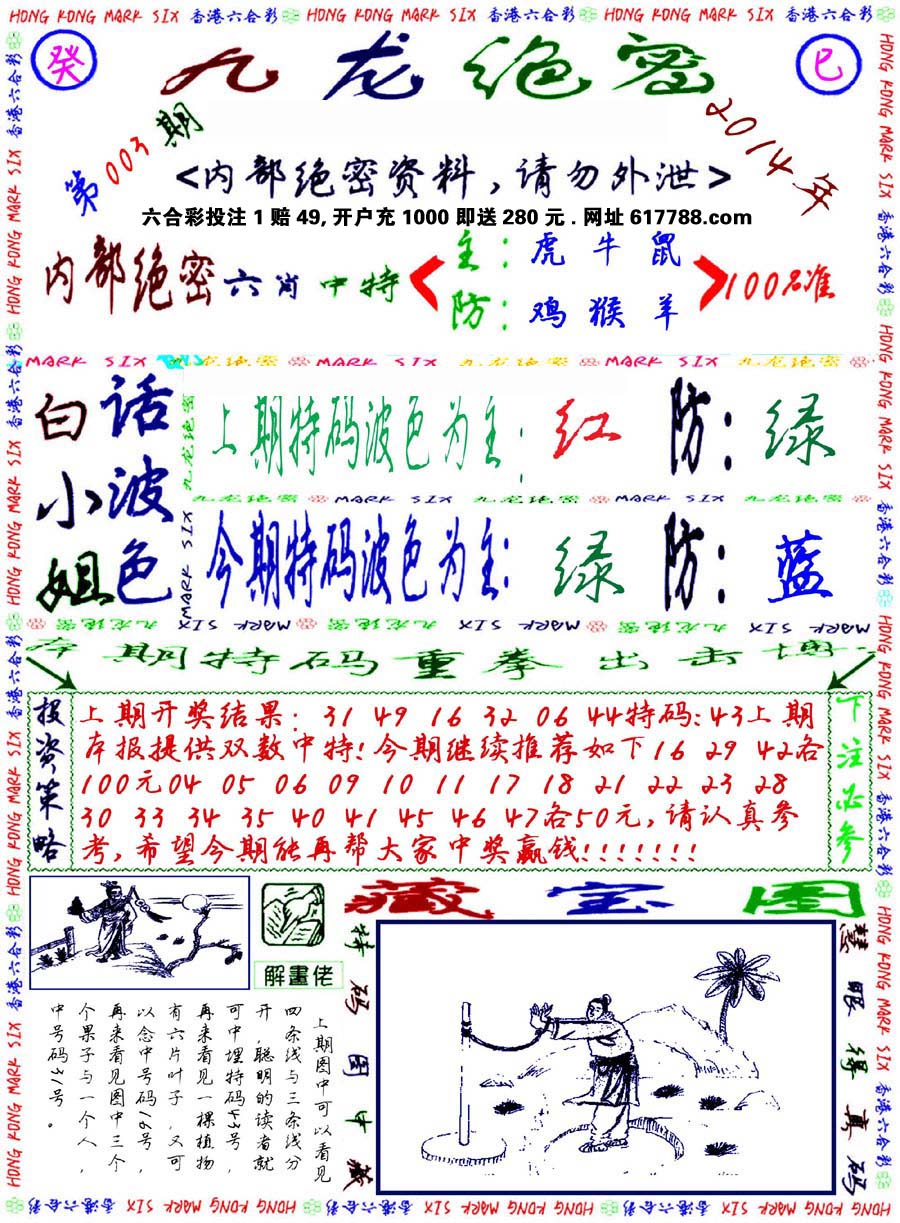 HONG KONG MARK SIX 香港六合彩 HONG KONG MARK SIX 香港六合彩 HONG KONG MARK SIX 香港六合彩
癸
九龙绝密
巳
第003期
2014年
<内部绝密资料,请勿外泄>
六合彩投注 1 赔 49, 开户充 1000 即送 280 元 . 网址 617788.com
内部绝密六肖中特
主:虎 牛 鼠
防:鸡 猴 羊
100%准
MARK SIX 九龙绝密 MARK SIX 九龙绝密 MARK SIX 九龙绝密
白话
小波
姐色
上期特码波色为主:红 防:绿
九龙绝密 MARK SIX 九龙绝密 MARK SIX 九龙绝密
今期特码波色为主:绿 防:蓝
九龙绝密 MARK SIX 九龙绝密 MARK SIX 九龙绝密 MARK SIX
本期特码重拳出击博
投资策略
上期开奖结果: 31 49 16 32 06 44特码:43上期
本报提供双数中特!今期继续推荐如下16 29 42各
100元04 05 06 09 10 11 17 18 21 22 23 28
30 33 34 35 40 41 45 46 47各50元,请认真参
考,希望今期能再帮大家中奖赢钱!!!!!!!
下注必参
藏宝图
解畫佬
特码图中藏
慧眼缘真码
上期图中可以看见
四条线与三条线分
开,聪明的读者就
可中埋特码43号,
再来看见一棵植物
有六片叶子,又可
以念中号码06号,
再来看见图中三个
个果子与一个人,
中号码31号。
HONG KONG MARK SIX 香港六合彩 HONG KONG MARK SIX 香港六合彩 HONG KONG MARK SIX 香港六合彩